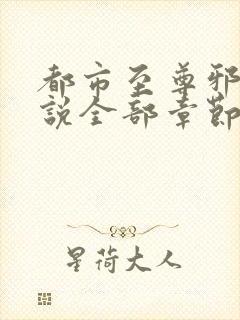 都市至尊邪
說全部章節
星荷大人